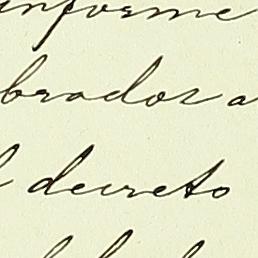 informe
brador a
decreto